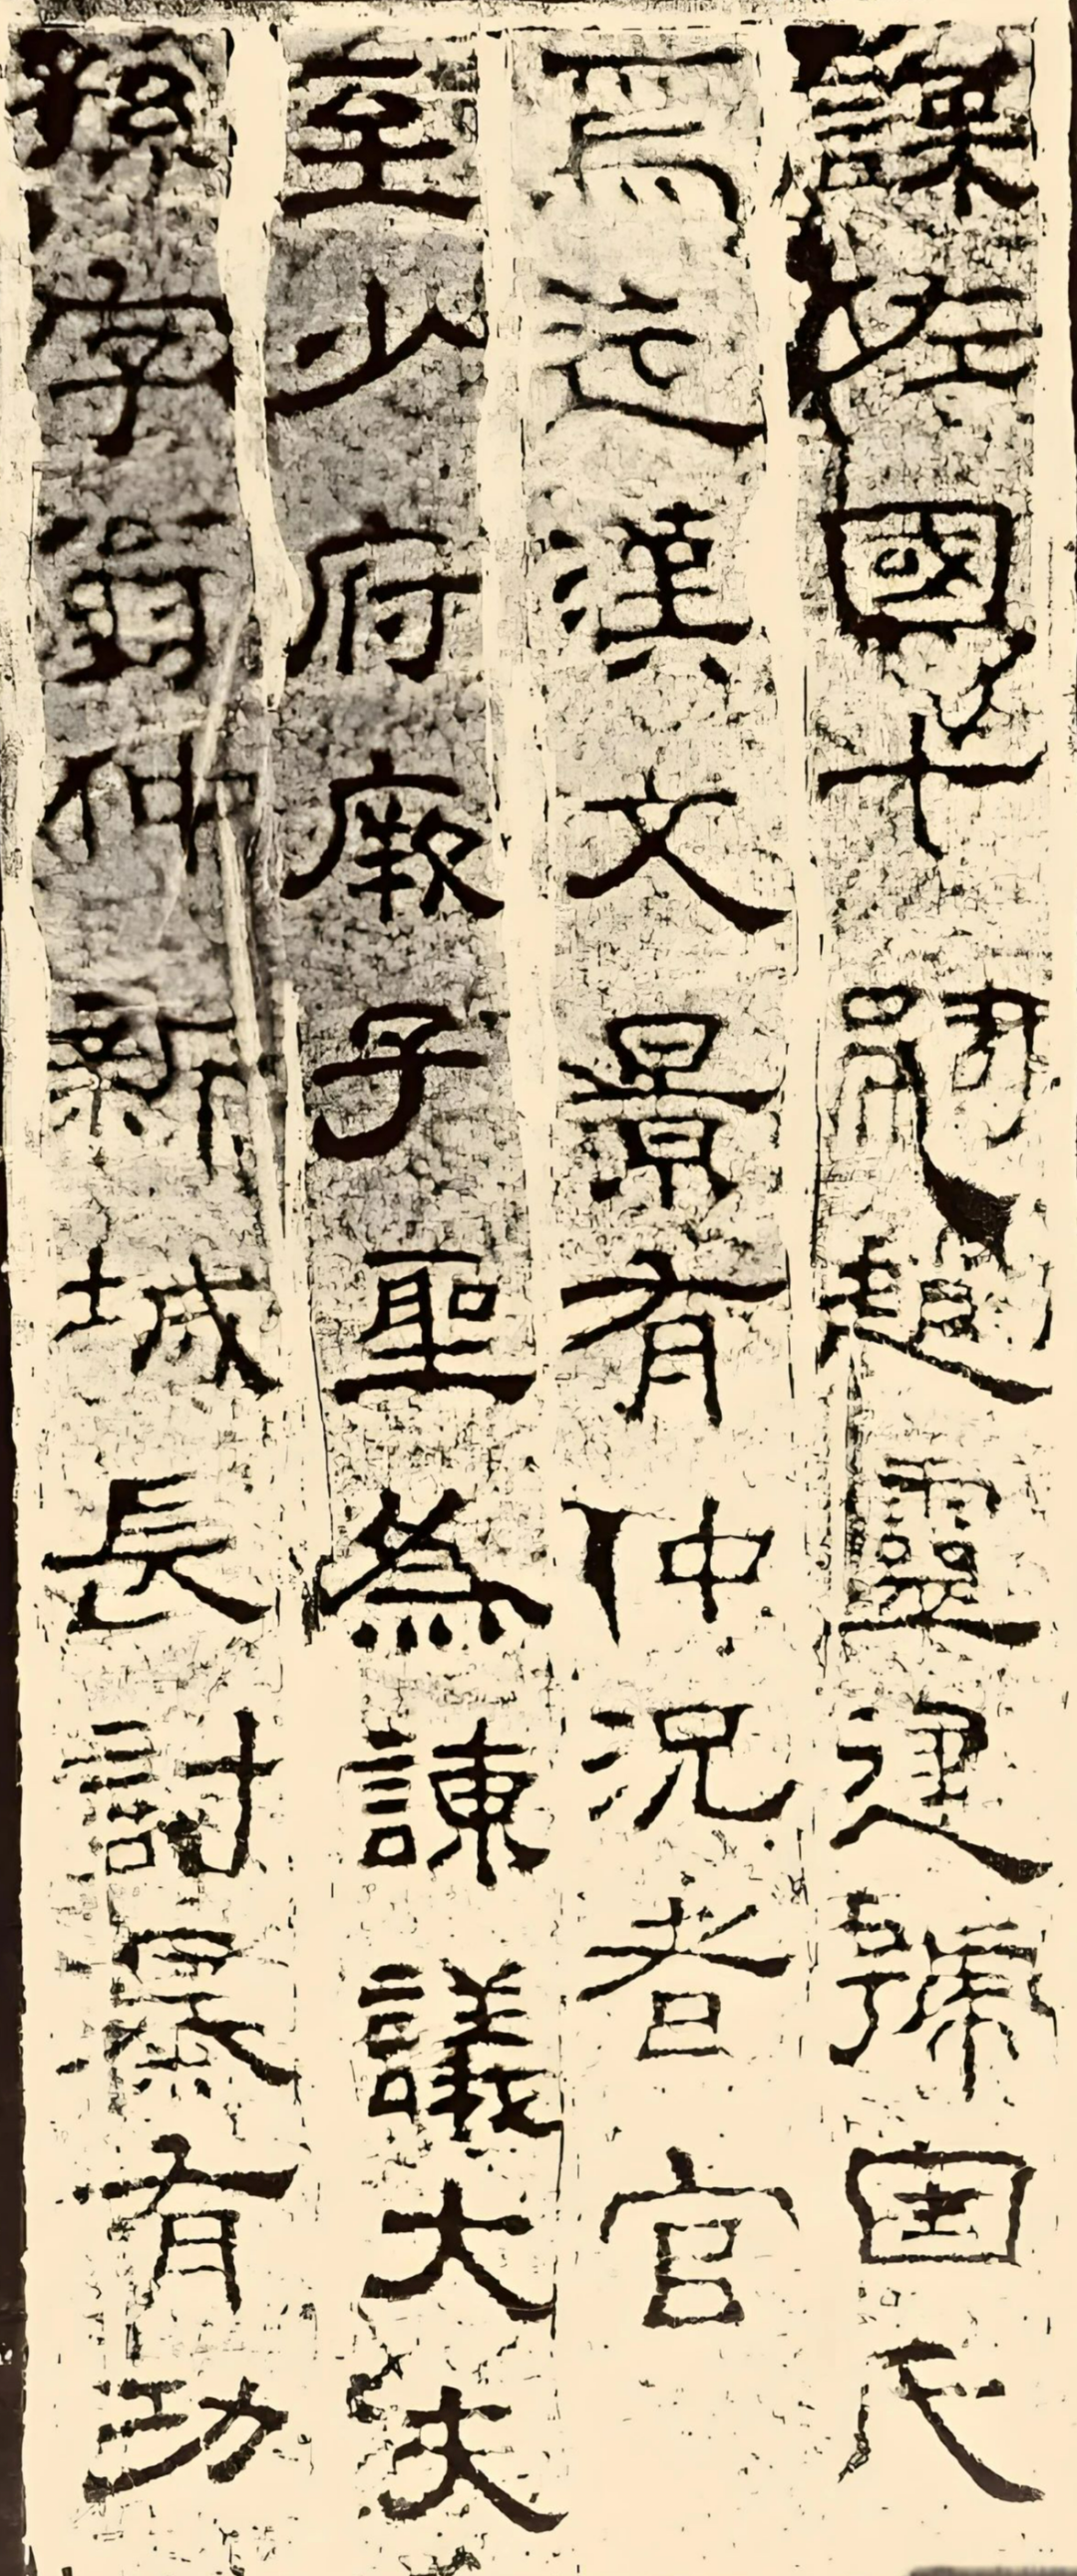 謀佐國十嗣趙靈建號因氏
焉迄漢文景有仲況者官
至少府厥子聖為諫議大夫
孫字翁仲新城長討暴有功